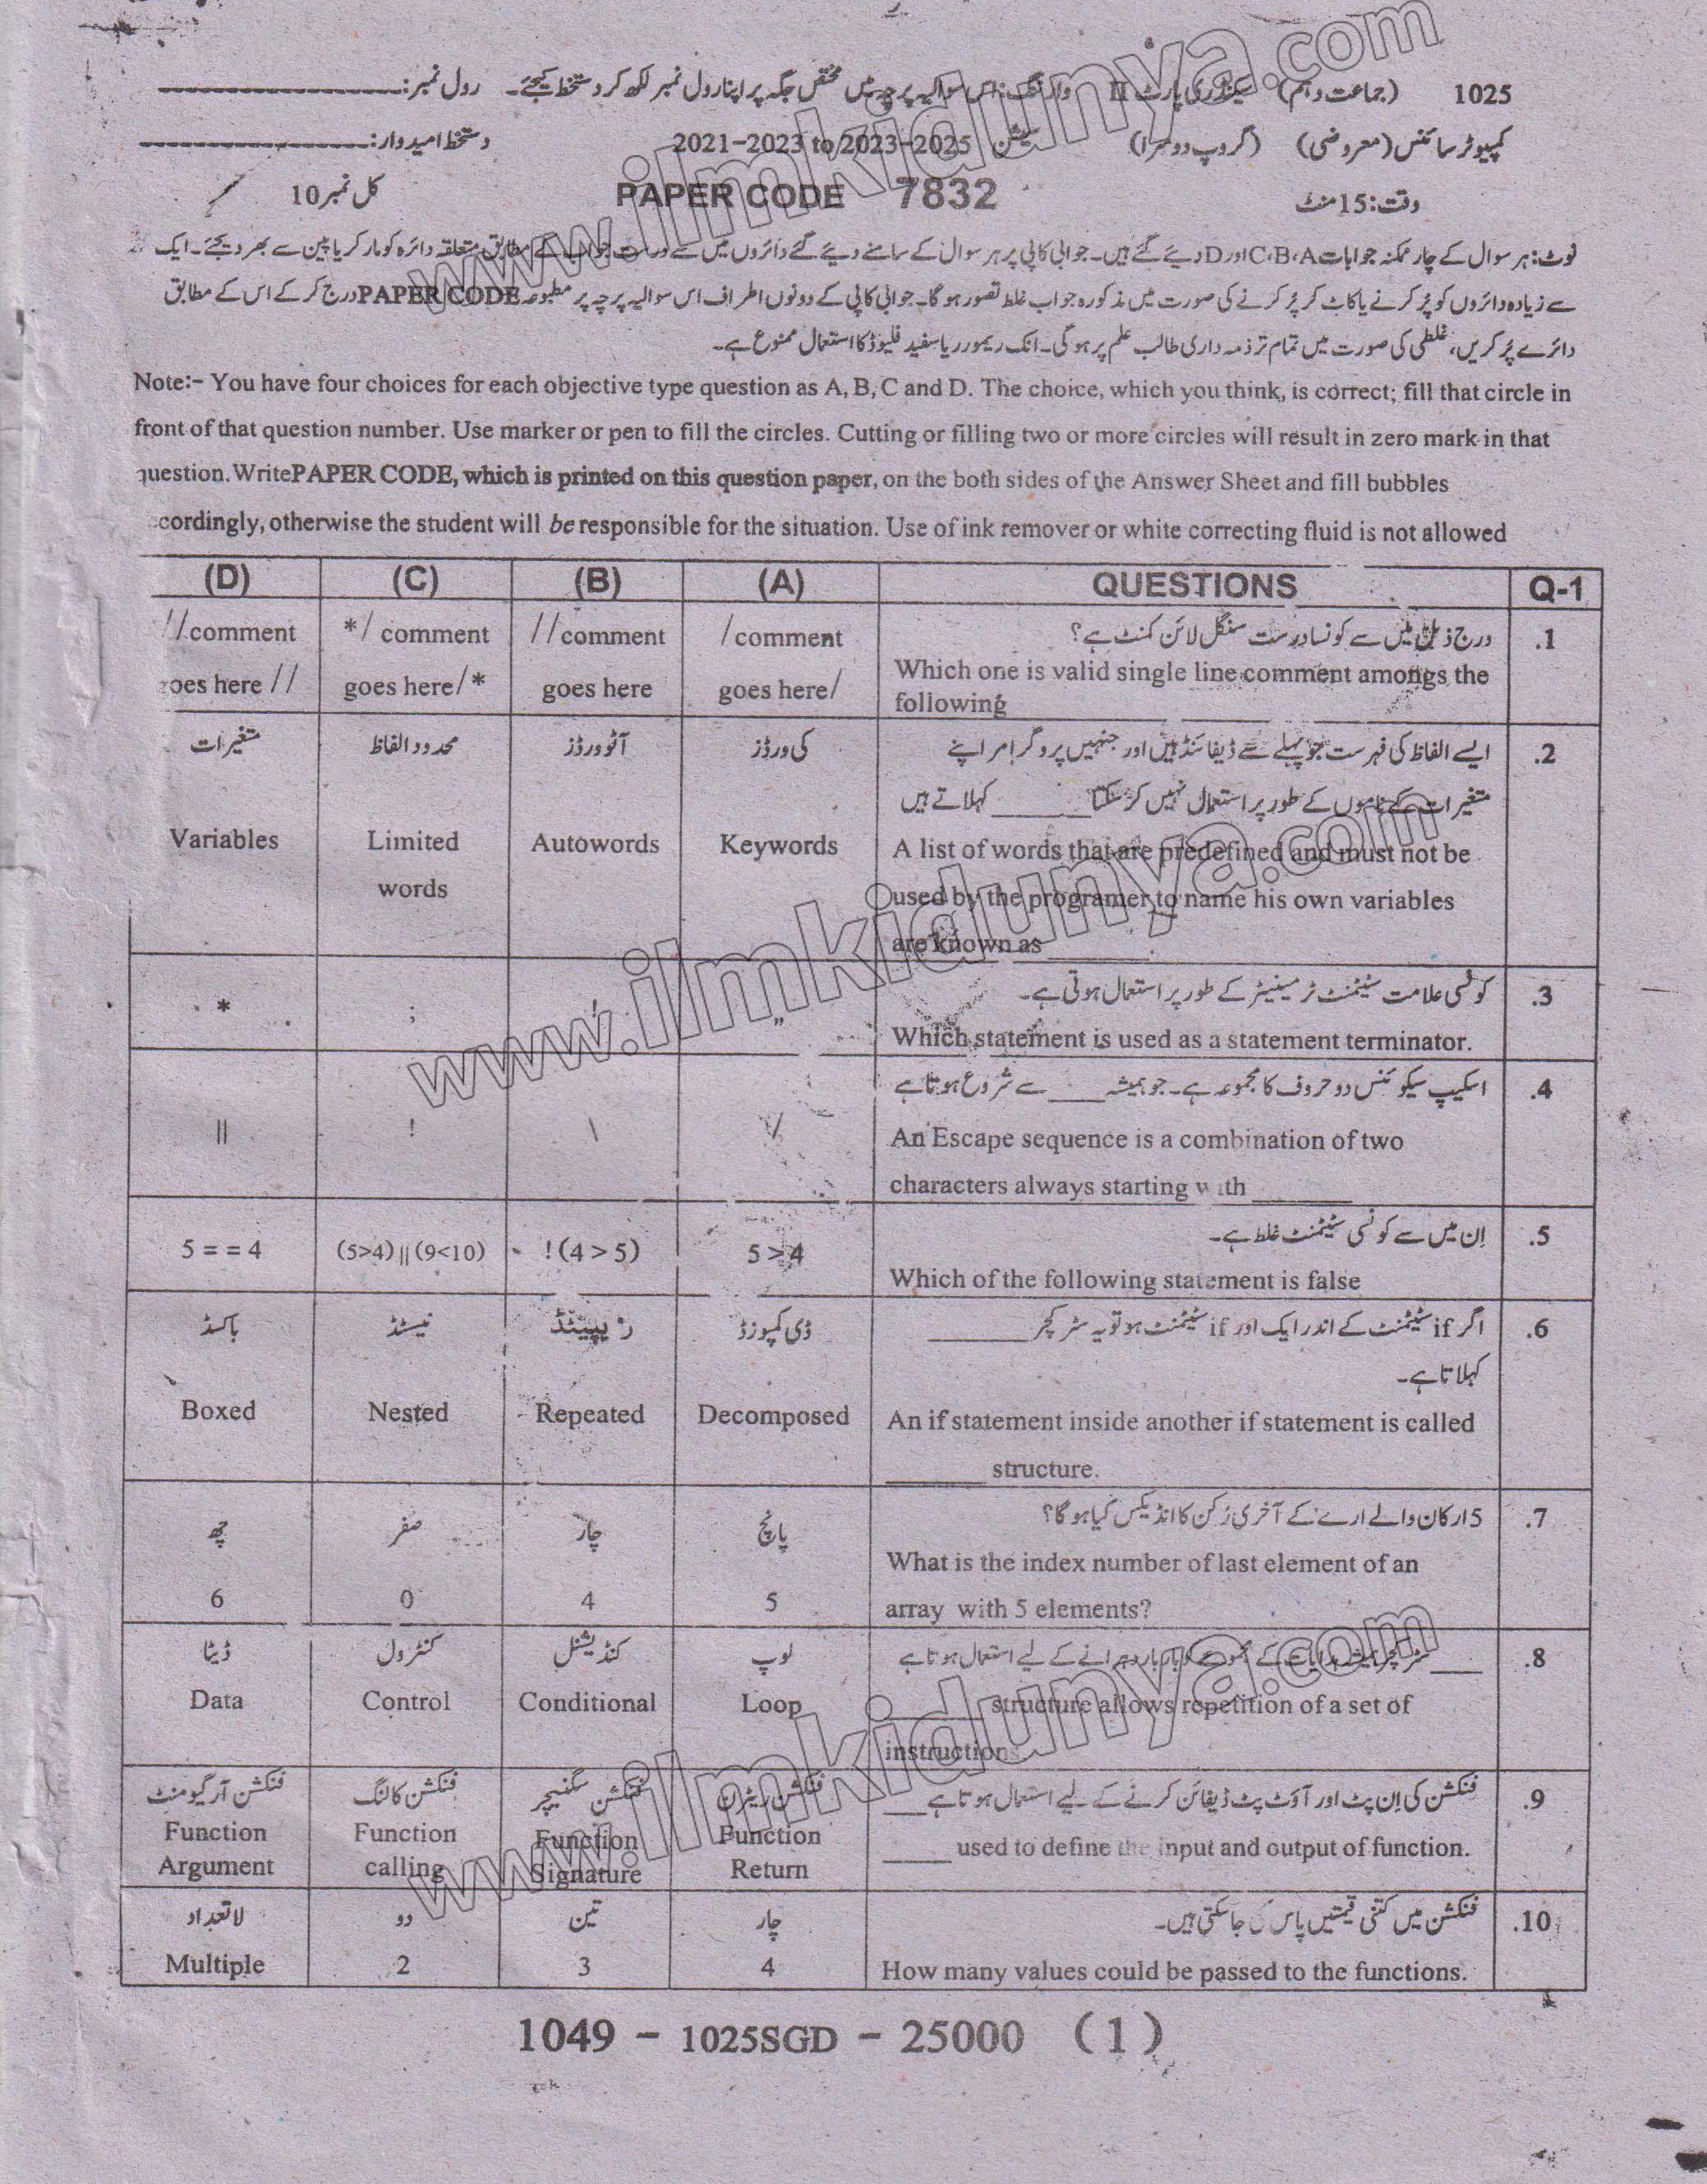 1025 (جماعت دہم) سیکنڈری پارٹ II وارننگ: اس سوالیہ پرچہ میں مختص جگہ پر اپنا رول نمبر لکھ کر دستخط کیجئے۔ رول نمبر:
کمپیوٹر سائنس (معروضی) (گروپ دوسرا) سیشن 2021-2023 to 2023-2025 دستخط امیدوار:
وقت: 15 منٹ PAPER CODE 7832 کل نمبر 10
نوٹ: ہر سوال کے چار ممکنہ جوابات C، B، A اور D دیئے گئے ہیں۔ جوابی کاپی پر ہر سوال کے سامنے دیئے گئے دائروں میں سے درست جواب کے مطابق متعلقہ دائرہ کو مارکر یا پین سے بھر دیجئے۔ ایک
سے زیادہ دائروں کو پُر کرنے یا کاٹ کر پُر کرنے کی صورت میں مذکورہ جواب غلط تصور ہوگا۔ جوابی کاپی کے دونوں اطراف اس سوالیہ پرچہ پر مطبوعہ PAPER CODE درج کر کے اس کے مطابق
دائرے پُر کریں، غلطی کی صورت میں تمام تر ذمہ داری طالب علم پر ہوگی۔ انک ریمور یا سفید فلیوڈ کا استعمال ممنوع ہے۔
Note:- You have four choices for each objective type question as A, B, C and D. The choice, which you think, is correct; fill that circle in
front of that question number. Use marker or pen to fill the circles. Cutting or filling two or more circles will result in zero mark in that
question. Write PAPER CODE, which is printed on this question paper, on the both sides of the Answer Sheet and fill bubbles
ccordingly, otherwise the student will be responsible for the situation. Use of ink remover or white correcting fluid is not allowed
(D) (C) (B) (A) QUESTIONS Q-1
درج ذیل میں سے کونسا درست سنگل لائن کمنٹ ہے؟ .1
//comment */ comment //comment /comment
Which one is valid single line comment amongs the
goes here // goes here/* goes here goes here/
following
متغیرات محدود الفاظ آٹو ورڈز کی ورڈز ایسے الفاظ کی فہرست جو پہلے سے ڈیفائنڈ ہیں اور جنہیں پروگرامر اپنے .2
متغیرات کے ناموں کے طور پر استعمال نہیں کر سکتا ______ کہلاتے ہیں
Variables Limited Autowords Keywords A list of words that are predefined and must not be
words used by the programer to name his own variables
are known as ______.
کونسی علامت سٹیٹمنٹ ٹرمینیٹر کے طور پر استعمال ہوتی ہے۔ .3
* ; ' ”
Which statement is used as a statement terminator.
اسکیپ سیکوئنس دو حروف کا مجموعہ ہے۔ جو ہمیشہ ____ سے شروع ہوتا ہے .4
|| ! \ / An Escape sequence is a combination of two
characters always starting with ______
اِن میں سے کونسی سٹیٹمنٹ غلط ہے۔ .5
5 = = 4 (5>4) || (9<10) ! (4 > 5) 5 > 4
Which of the following statement is false
باکسڈ نیسٹڈ رپیٹڈ ڈی کمپوزڈ اگر if سٹیٹمنٹ کے اندر ایک اور if سٹیٹمنٹ ہو تو یہ سٹرکچر ______ .6
کہلاتا ہے۔
Boxed Nested Repeated Decomposed An if statement inside another if statement is called
______ structure.
چھ صفر چار پانچ 5 ارکان والے ارے کے آخری رُکن کا انڈیکس کیا ہوگا؟ .7
What is the index number of last element of an
6 0 4 5 array with 5 elements?
ڈیٹا کنٹرول کنڈیشنل لوپ ____ سٹرکچر ہدایات کے مجموعے کو بار بار دہرانے کے لیے استعمال ہوتا ہے .8
Data Control Conditional Loop ______ structure allows repetition of a set of
instructions
فنکشن آرگیومنٹ فنکشن کالنگ فنکشن سگنیچر فنکشن ریٹرن فنکشن کی اِن پٹ اور آؤٹ پٹ ڈیفائن کرنے کے لیے استعمال ہوتا ہے ____ .9
Function Function Function Function ____ used to define the input and output of function.
Argument calling Signature Return
لاتعداد دو تین چار فنکشن میں کتنی قیمتیں پاس کی جاسکتی ہیں۔ .10
Multiple 2 3 4 How many values could be passed to the functions.
1049 - 1025SGD - 25000 (1)
www.ilmkidunya.com
www.ilmkidunya.com
www.ilmkidunya.com